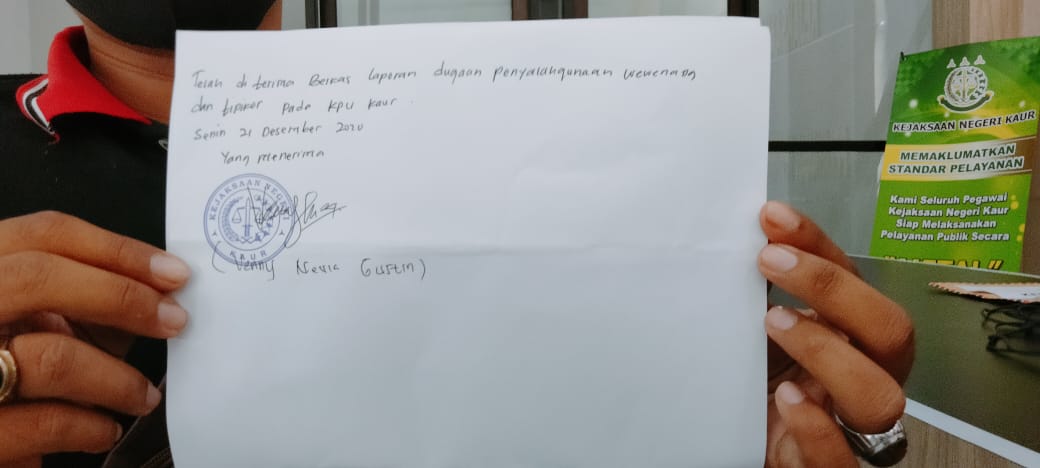 Telah di terima Berkas laporan dugaan Penyalahgunaan wewenang
dan tipikor pada KPU Kaur.
Senin 21 Desember 2020
Yang Menerima
KEJAKSAAN NEGERI
KAUR
Nevia Gustin)
KEJAKSAAN NEGERI KAUR
MEMAKLUMATKAN
STANDAR PELAYANAN
Kami Seluruh Pegawai
Kejaksaan Negeri Kaur
Siap Melaksanakan
Pelayanan Publik Secara